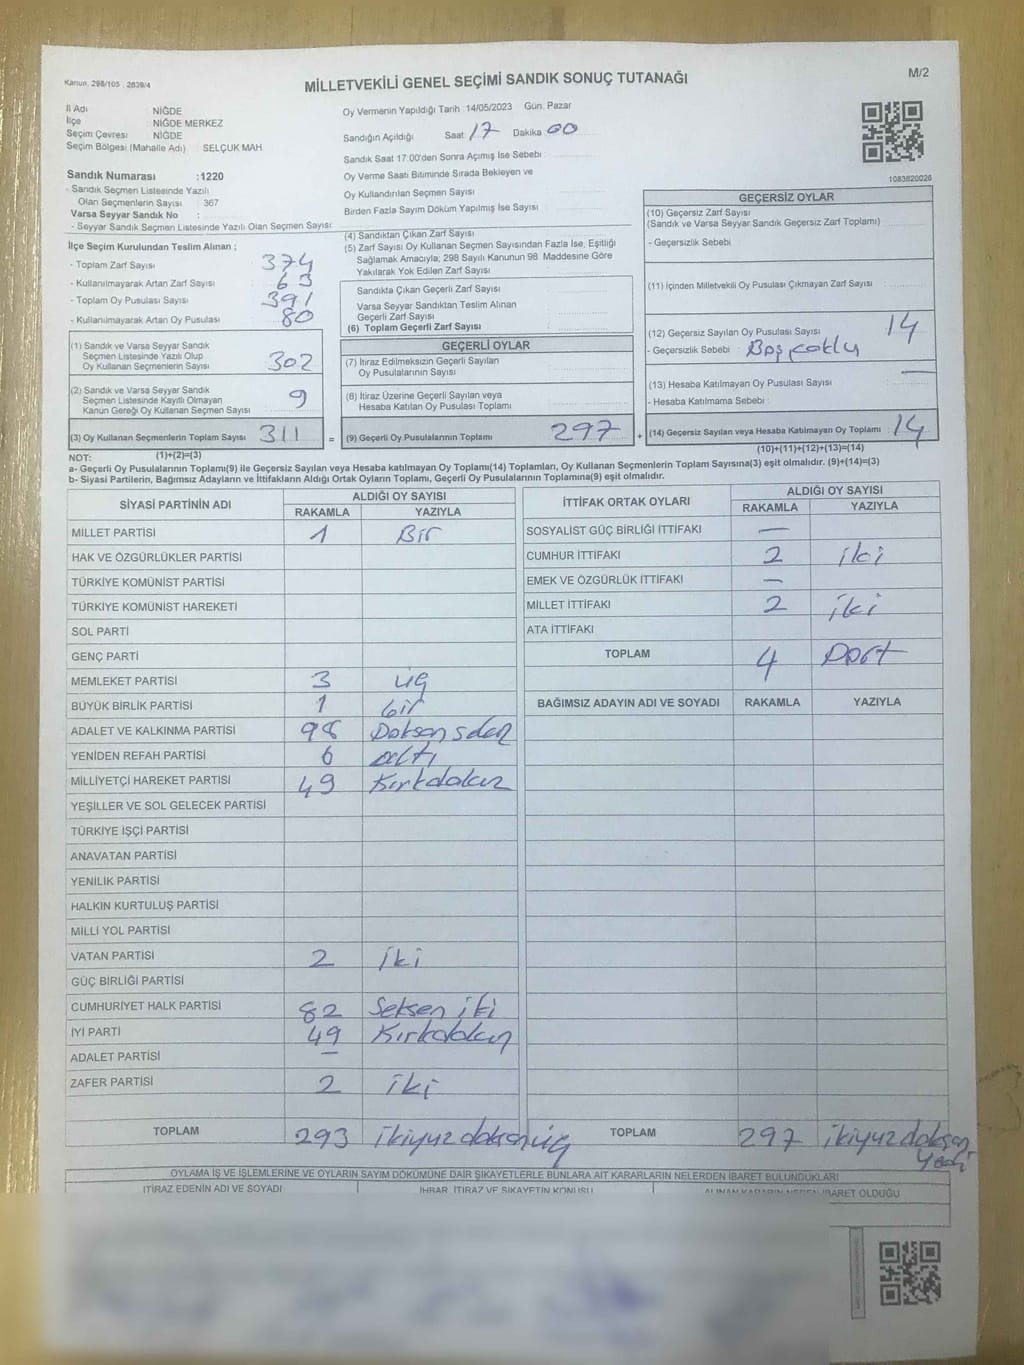 Kanun: 298/105, 2839/4
MİLLETVEKİLİ GENEL SEÇİMİ SANDIK SONUÇ TUTANAĞI
M/2
İl Adı NİĞDE
İlçe NİĞDE MERKEZ
Seçim Çevresi NİĞDE
Seçim Bölgesi (Mahalle Adı) : SELÇUK MAH.
Sandık Numarası :1220
- Sandık Seçmen Listesinde Yazılı
Olan Seçmenlerin Sayısı : 367
Varsa Seyyar Sandık No :
- Seyyar Sandık Seçmen Listesinde Yazılı Olan Seçmen Sayısı:
Oy Vermenin Yapıldığı Tarih :14/05/2023 Gün: Pazar
Sandığın Açıldığı Saat: 17 Dakika: 00
Sandık Saat 17:00'den Sonra Açımış İse Sebebi
Oy Verme Saati Bitiminde Sırada Bekleyen ve
Oy Kullandırılan Seçmen Sayısı
Birden Fazla Sayım Döküm Yapılmış İse Sayısı
1083620026
İlçe Seçim Kurulundan Teslim Alınan ;
- Toplam Zarf Sayısı 374
- Kullanılmayarak Artan Zarf Sayısı 63
- Toplam Oy Pusulası Sayısı 391
- Kullanılmayarak Artan Oy Pusulası 80
(1) Sandık ve Varsa Seyyar Sandık
Seçmen Listesinde Yazılı Olup
Oy Kullanan Seçmenlerin Sayısı 302
(2) Sandık ve Varsa Seyyar Sandık
Seçmen Listesinde Kayıtlı Olmayan
Kanun Gereği Oy Kullanan Seçmen Sayısı 9
(3) Oy Kullanan Seçmenlerin Toplam Sayısı 311 =
(4) Sandıktan Çıkan Zarf Sayısı
(5) Zarf Sayısı Oy Kullanan Seçmen Sayısından Fazla İse, Eşitliği
Sağlamak Amacıyla; 298 Sayılı Kanunun 98 Maddesine Göre
Yakılarak Yok Edilen Zarf Sayısı
Sandıkta Çıkan Geçerli Zarf Sayısı
Varsa Seyyar Sandıktan Teslim Alınan
Geçerli Zarf Sayısı
(6) Toplam Geçerli Zarf Sayısı
GEÇERLİ OYLAR
(7) İtiraz Edilmeksizin Geçerli Sayılan
Oy Pusulalarının Sayısı
(8) İtiraz Üzerine Geçerli Sayılan veya
Hesaba Katılan Oy Pusulası Toplamı
(9) Geçerli Oy Pusulalarının Toplamı 297 +
GEÇERSİZ OYLAR
(10) Geçersiz Zarf Sayısı
(Sandık ve Varsa Seyyar Sandık Geçersiz Zarf Toplamı)
- Geçersizlik Sebebi
(11) İçinden Milletvekili Oy Pusulası Çıkmayan Zarf Sayısı :
(12) Geçersiz Sayılan Oy Pusulası Sayısı 14
- Geçersizlik Sebebi :
(13) Hesaba Katılmayan Oy Pusulası Sayısı —
- Hesaba Katılmama Sebebi :
(14) Geçersiz Sayılan veya Hesaba Katılmayan Oy Toplamı : 14
NOT: (1)+(2)=(3)
(10)+(11)+(12)+(13)=(14)
a- Geçerli Oy Pusulalarının Toplamı(9) ile Geçersiz Sayılan veya Hesaba katılmayan Oy Toplamı(14) Toplamları, Oy Kullanan Seçmenlerin Toplam Sayısına(3) eşit olmalıdır. (9)+(14)=(3)
b- Siyasi Partilerin, Bağımsız Adayların ve İttifakların Aldığı Ortak Oyların Toplamı, Geçerli Oy Pusulalarının Toplamına(9) eşit olmalıdır.
SİYASİ PARTİNİN ADI ALDIĞI OY SAYISI
RAKAMLA YAZIYLA
MİLLET PARTİSİ 1 Bir
HAK VE ÖZGÜRLÜKLER PARTİSİ
TÜRKİYE KOMÜNİST PARTİSİ
TÜRKİYE KOMÜNİST HAREKETİ
SOL PARTİ
GENÇ PARTİ
MEMLEKET PARTİSİ 3 üç
BÜYÜK BİRLİK PARTİSİ 1 bir
ADALET VE KALKINMA PARTİSİ 98 Doksan sekiz
YENİDEN REFAH PARTİSİ 6 altı
MİLLİYETÇİ HAREKET PARTİSİ 49 Kırkdokuz
YEŞİLLER VE SOL GELECEK PARTİSİ
TÜRKİYE İŞÇİ PARTİSİ
ANAVATAN PARTİSİ
YENİLİK PARTİSİ
HALKIN KURTULUŞ PARTİSİ
MİLLİ YOL PARTİSİ
VATAN PARTİSİ 2 iki
GÜÇ BİRLİĞİ PARTİSİ
CUMHURİYET HALK PARTİSİ 82 Seksen iki
İYİ PARTİ 49 Kırkdokuz
ADALET PARTİSİ —
ZAFER PARTİSİ 2 iki
TOPLAM 293 ikiyüz doksan üç
İTTİFAK ORTAK OYLARI ALDIĞI OY SAYISI
RAKAMLA YAZIYLA
SOSYALİST GÜÇ BİRLİĞİ İTTİFAKI —
CUMHUR İTTİFAKI 2 iki
EMEK VE ÖZGÜRLÜK İTTİFAKI —
MİLLET İTTİFAKI 2 iki
ATA İTTİFAKI
TOPLAM 4 Dört
BAĞIMSIZ ADAYIN ADI VE SOYADI RAKAMLA YAZIYLA
TOPLAM 297 ikiyüz doksan
yedi
OYLAMA İŞ VE İŞLEMLERİNE VE OYLARIN SAYIM DÖKÜMÜNE DAİR ŞİKAYETLERLE BUNLARA AİT KARARLARIN NELERDEN İBARET BULUNDUKLARI
İTİRAZ EDENİN ADI VE SOYADI İHBAR, İTİRAZ VE ŞİKAYETİN KONUSU ALINAN KARARIN NEDEN İBARET OLDUĞU